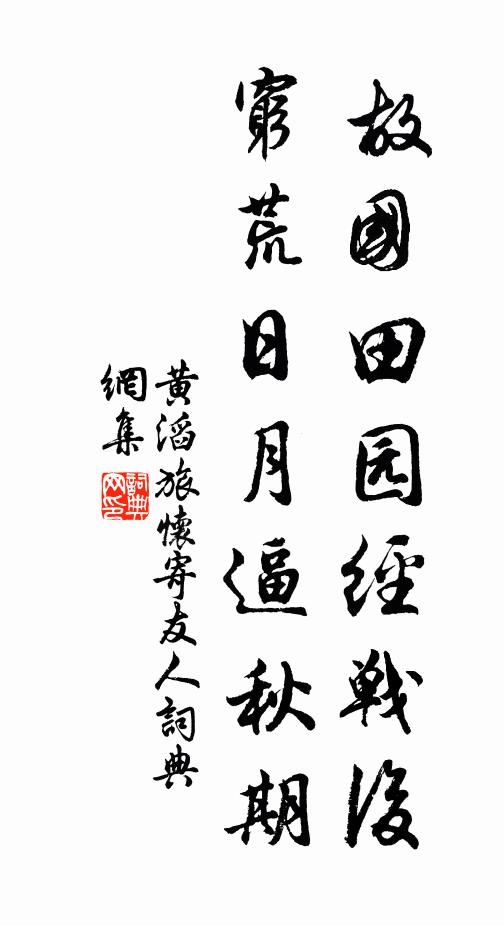 故國田园經戰後
窮荒日月逼秋期
黃滔旅懷寄友人詞典
網集
詞典
网印